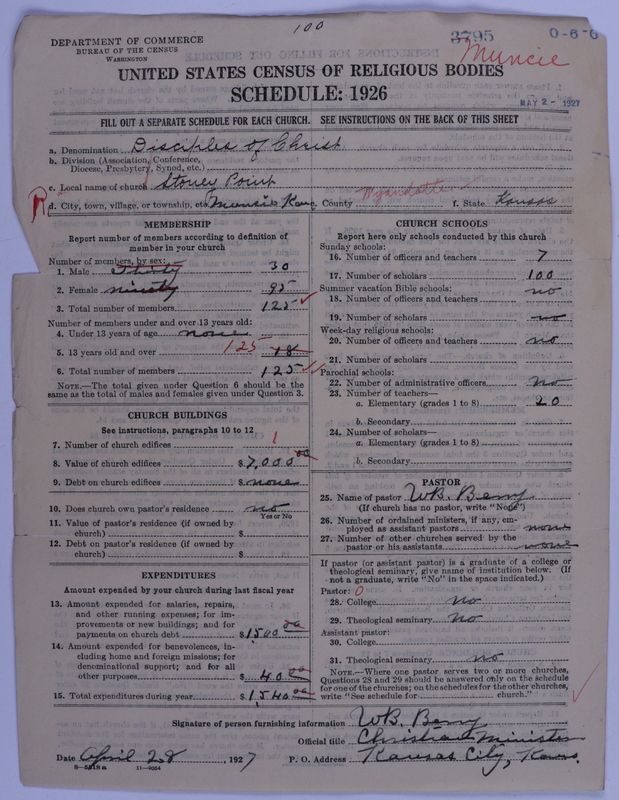 100
DEPARTMENT OF COMMERCE
BUREAU OF THE CENSUS
WASHINGTON
3795
0-6-6
Muncie
UNITED STATES CENSUS OF RELIGIOUS BODIES
SCHEDULE: 1926
MAY 2 - 1927
FILL OUT A SEPARATE SCHEDULE FOR EACH CHURCH. SEE INSTRUCTIONS ON THE BACK OF THIS SHEET
a. Denomination Disciples of Christ
b. Division (Association, Conference,
Diocese, Presbytery, Synod, etc.)
c. Local name of church Stoney Point
d. City, town, village, or township, etc. Muncie Kans. County Wyandotte f. State Kansas
MEMBERSHIP
Report number of members according to definition of
member in your church
Number of members, by sex:
1. Male Thirty 30
2. Female ninety 95
3. Total number of members 125
Number of members under and over 13 years old:
4. Under 13 years of age none
5. 13 years old and over 125 18
6. Total number of members 125
NOTE.—The total given under Question 6 should be the
same as the total of males and females given under Question 3.
CHURCH BUILDINGS
See instructions, paragraphs 10 to 12
7. Number of church edifices 1
8. Value of church edifices $7,000 00
9. Debt on church edifices $none
10. Does church own pastor's residence no
Yes or No
11. Value of pastor's residence (if owned by
church) $
12. Debt on pastor's residence (if owned by
church) $
EXPENDITURES
Amount expended by your church during last fiscal year
13. Amount expended for salaries, repairs,
and other running expenses; for im-
provements or new buildings; and for
payments on church debt $1500 00
14. Amount expended for benevolences, in-
cluding home and foreign missions; for
denominational support; and for all
other purposes $40 00
15. Total expenditures during year $1,540 00
CHURCH SCHOOLS
Report here only schools conducted by this church
Sunday schools:
16. Number of officers and teachers 7
17. Number of scholars 100
Summer vacation Bible schools:
18. Number of officers and teachers no
19. Number of scholars no
Week-day religious schools:
20. Number of officers and teachers no
21. Number of scholars
Parochial schools:
22. Number of administrative officers no
23. Number of teachers—
a. Elementary (grades 1 to 8) 20
b. Secondary
24. Number of scholars—
a. Elementary (grades 1 to 8)
b. Secondary
PASTOR
25. Name of pastor WB. Berry
(If church has no pastor, write "None")
26. Number of ordained ministers, if any, em-
ployed as assistant pastors none
27. Number of other churches served by the
pastor or his assistants none
If pastor (or assistant pastor) is a graduate of a college or
theological seminary, give name of institution below. (If
not a graduate, write "No" in the space indicated.)
Pastor: 0
28. College no
29. Theological seminary no
Assistant pastor:
30. College
31. Theological seminary no
NOTE.—Where one pastor serves two or more churches,
Questions 28 and 29 should be answered only on the schedule
for one of the churches; on the schedules for the other churches,
write "See schedule for church."
Signature of person furnishing information WB. Berry
Official title Christian Minister
Date April 28, 1927 P. O. Address Kansas City, Kans.
8-5518a 11-9054